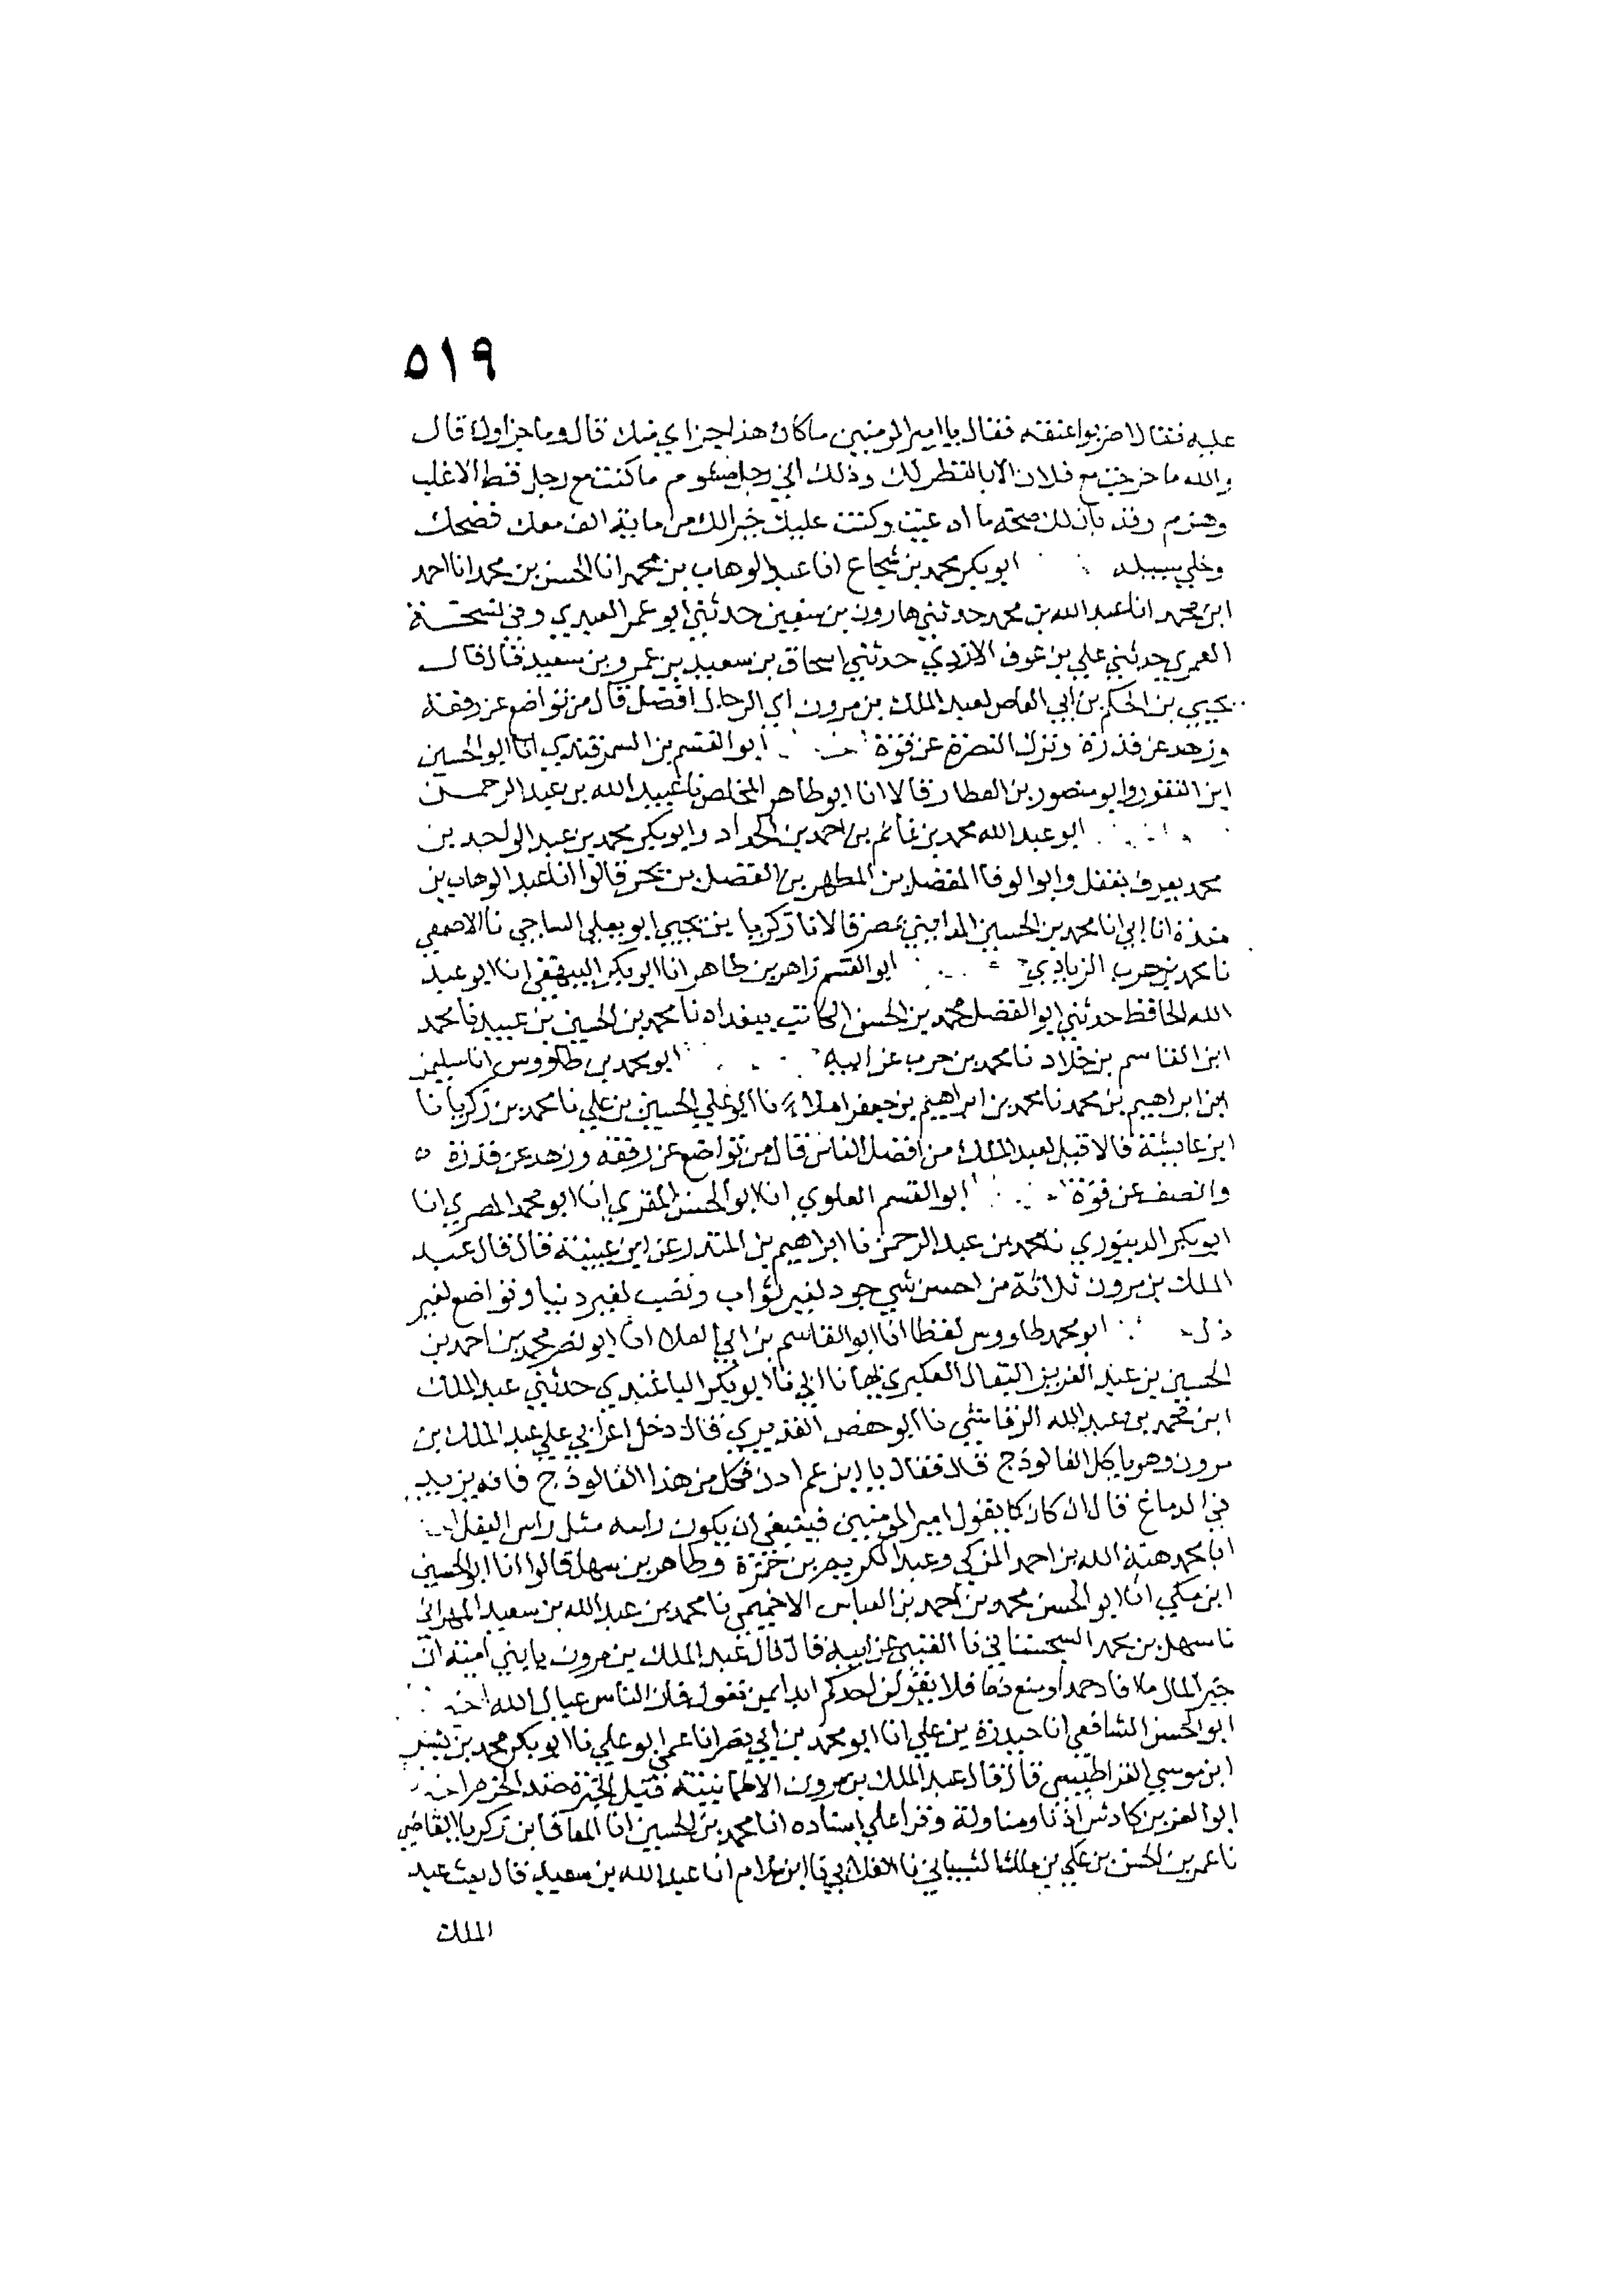 ٥١٩
عليه فقال اضربوا عنقه فقال يا امير المومنين ما كان هذا جزاي منك قال وما جزاوك قال
والله ما خرجت مع فلان الا بالنظر لك وذلك اني رجل مشوم ما كنت مع رجل قط الا غلب
وهزم وقد بان لك صحة ما ادعيت وكنت عليك خيرا لك من ماية الف معك فضحك
وخلى سبيله ابو بكر محمد بن شجاع انا عبد الوهاب بن محمد انا الحسن بن محمد انا احمد
ابن محمد انا عبد الله بن محمد حدثني هارون بن سفين حدثني ابو عمر العبدي وفي نسخة
العمري حدثني علي بن عوف الازدي حدثني اسحاق بن سعيد بن عمرو بن سعيد قال قال
يحيى بن الحكم بن ابي العاص لعبد الملك بن مرون اي الرجال افضل قال من تواضع عن رفعة
وزهد عن قدرة وترك النصرة عن قوة ابو القسم بن السمرقندي انا ابو الحسين
ابن النقور وابو منصور بن العطار قالا انا ابو طاهر المخلص نا عبيد الله بن عبد الرحمن
ابو عبد الله محمد بن غانم بن احمد بن الحداد وابو بكر محمد بن عبد الواحد بن
محمد يعرف بفغل وابو الوفا المفضل بن المطهر بن الفضل بن بحر قالوا انا عبد الوهاب بن
مندة انا ابي انا محمد بن الحسين المدايني بمصر قالا نا زكريا بن يحيى ابو يعلى الساجي نا الاصمعي
نا محمد بن حرب الزيادي ابو القسم زاهر بن طاهر انا ابو بكر البيهقي انا ابو عبد
الله الحافظ حدثني ابو الفضل محمد بن الحسن الكاتب ببغداد نا محمد بن الحسين بن عبيد نا محمد
ابن القاسم بن خلاد نا محمد بن حرب عن ابيه ابو محمد بن طاووس انا سليمن
ابن ابراهيم بن محمد نا محمد بن ابراهيم بن جعفر املاء نا ابو علي الحسين بن علي نا محمد بن زكريا نا
ابن عايشة قالا قيل لعبد الملك من افضل الناس قال من تواضع عن رفعة وزهد عن قدرة
وانصف عن قوة ابو القسم العلوي انا ابو الحسن المقري انا ابو محمد المصري انا
ابو بكر الدينوري نا محمد بن عبد الرحمن نا ابراهيم بن المنذر عن ابن عيينة قال قال عبد
الملك بن مرون ثلاثة من احسن شي جود لغير ثواب ونصب لغير دنيا وتواضع لغير
ذل ابو محمد طاووس لفظا انا ابو القاسم بن ابي العلا انا ابو نصر محمد بن احمد بن
الحسين بن عبد العزيز البقال العكبري بها نا ابي نا ابو بكر الباغندي حدثني عبد الملك
ابن محمد بن عبد الله الرقاشي نا ابو حفص القديري قال دخل اعرابي علي عبد الملك بن
مرون وهو ياكل الفالوذج قال فقال يا ابن عم ادن فكل من هذا الفالوذج فانه يزيد
في الدماغ قال ان كان كما يقول امير المومنين فينبغي ان يكون راسه مثل راس البغل
ابا محمد هبة الله بن احمد المزكي وعبد الكريم بن حمزة وطاهر بن سهل قالوا انا ابو الحسين
ابن مكي انا ابو الحسن محمد بن احمد بن العباس الاخميمي نا محمد بن عبد الله بن سعيد المهراني
نا سهل بن محمد السجستاني نا العتبي عن ابيه قال قال عبد الملك بن مرون يا بني امية ان
خير المال ما افاد حمدا ومنع ذما فلا يقولن احدكم ابدا بمن تعول فان الناس عيال الله
ابو الحسن الشافعي انا حيدرة بن علي انا ابو محمد بن ابي نصر انا عمي ابو علي نا ابو بكر محمد بن بشر
ابن موسي القراطيسي قال قال عبد الملك بن مرون الاطمانينة قبل الخبرة ضد الحزم
ابو العز بن كادش اذنا ومناولة وقرا علي اسناده انا محمد بن الحسين انا المعافا بن زكريا القاضي
نا عمر بن الحسن بن علي بن ملك الشيباني نا الغلابي نا ابن عبد الله بن سعيد قال بعث عبد
الملك